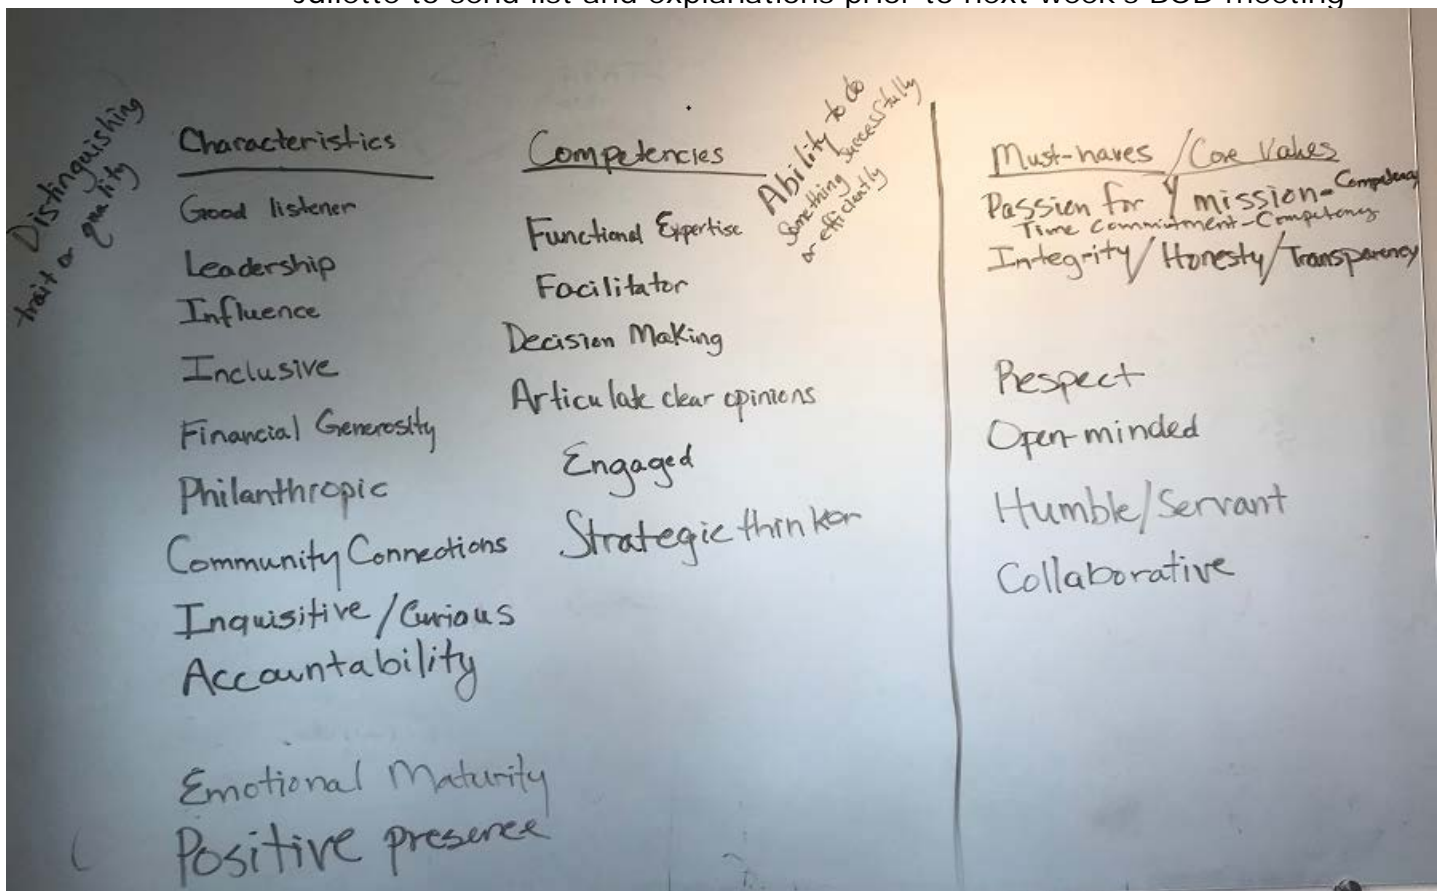 Juliette to send list and explanations prior to next week's BOD meeting
Distinguishing
trait or quality
Characteristics
Good listener
Leadership
Influence
Inclusive
Financial Generosity
Philanthropic
Community Connections
Inquisitive/Curious
Accountability
Emotional Maturity
Positive presence
Competencies
Ability to do
something successfully
or efficiently
Functional Expertise
Facilitator
Decision Making
Articulate clear opinions
Engaged
Strategic thinker
Must-haves/Core Values
Passion for mission-Competency
Time Commitment-Competency
Integrity/Honesty/Transparency
Respect
Open-minded
Humble/Servant
Collaborative